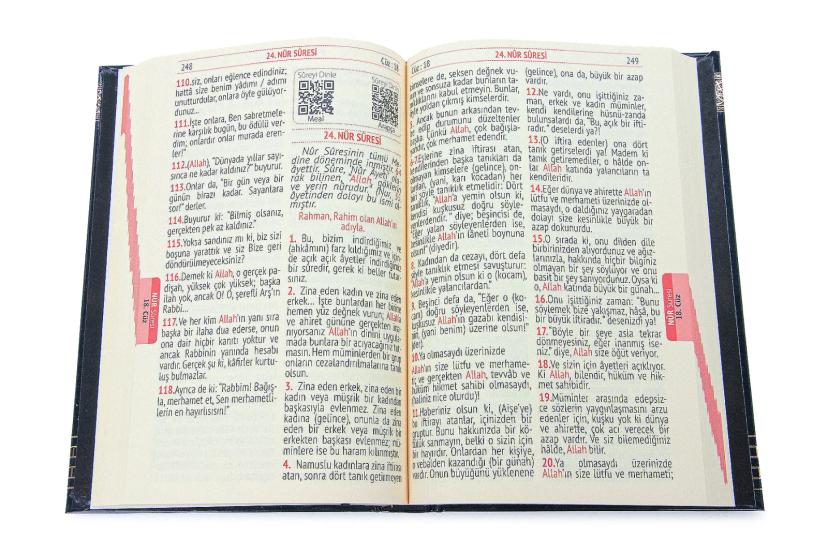 248
24. NÛR SÛRESİ
Cüz : 18
110.siz, onları eğlence edindiniz;
hattâ size benim yâdımı / adımı
unutturdular, onlara öyle gülüyor-
dunuz...
111.İşte onlara, Ben sabretmele-
rine karşılık bugün, bu ödülü ver-
dim; onlardır onlar murada eren-
ler!"
112.(Allah), "Dünyada yıllar sayı-
sınca ne kadar kaldınız?" buyurur.
113.Onlar da, "Bir gün veya bir
günün birazı kadar. Sayanlara
sor!" derler.
114.Buyurur ki: "Bilmiş olsanız,
gerçekten pek az kaldınız."
115.Yoksa sandınız mı ki, biz sizi
boşuna yarattık ve siz Bize geri
döndürülmeyeceksiniz?
116.Demek ki Allah, o gerçek pa-
dişah, yüksek çok yüksek; başka
ilah yok, ancak O! O, şerefli Arş'ın
Rabbi...
117.Ve her kim Allah'ın yanı sıra
başka bir ilaha dua ederse, onun
ona dair hiçbir kanıtı yoktur ve
ancak Rabbinin yanında hesabı
vardır. Gerçek şu ki, kâfirler kurtu-
luş bulmazlar.
118.Ayrıca de ki: "Rabbim! Bağış-
la, merhamet et, Sen merhametli-
lerin en hayırlısısın!"
NÛR Sûresi
18. Cüz
Sûreyi Dinle
Meal
Sûreyi Dinle
Arapça
24. NÛR SÛRESİ
Nûr Sûresinin tümü Me-
dine döneminde inmiştir. 64
âyettir. Sûre, 'Nûr Âyeti' ola-
rak bilinen, "Allah, göklerin
ve yerin nûrudur." (Nur, 35)
âyetinden dolayı bu ismi al-
mıştır.
Rahman, Rahim olan Allah'ın
adıyla.
1. Bu, bizim indirdiğimiz ve
(ahkâmını) farz kıldığımız ve için-
de açık açık âyetler indirdiğimiz
bir sûredir, gerek ki beller tuta-
sınız.
2. Zina eden kadın ve zina eden
erkek... İşte bunlardan her birine
hemen yüz değnek vurun, Allah'a
ve ahiret gününe gerçekten ina-
nıyorsanız Allah'ın dinini uygula-
mada bunlara bir acıyacağınız tut-
masın. Hem müminlerden bir grup
onların cezalandırılmalarına tanık
olsun.
3. Zina eden erkek, zina eden bir
kadın veya müşrik bir kadından
başkasıyla evlenmez. Zina eden
kadına (gelince), onunla da zina
eden bir erkek veya müşrik bir
erkekten başkası evlenmez; mü-
minlere ise bu haram kılınmıştır.
4. Namuslu kadınlara zina iftirası
atan, sonra dört tanık getirmeyen
Cüz : 18
24. NÛR SÛRESİ
249
kimselere de, seksen değnek vu-
run ve sonsuza kadar bunların ta-
nıklıklarını kabul etmeyin. Bunlar,
öyle yoldan çıkmış kimselerdir.
Ancak bunun arkasından tev-
be edip durumunu düzeltenler
başka. Çünkü Allah, çok bağışla-
yandır, çok merhamet edendir.
6-7.Eşlerine zina iftirası atan,
kendilerinden başka tanıkları da
olmayan kimselere (gelince), on-
lardan, (yani, karı kocadan) her
biri şöyle tanıklık etmelidir: Dört
defa, "Allah'a yemin olsun ki,
kendisi kuşkusuz doğru söyle-
yenlerdendir." diye; beşincisi de,
"Eğer yalan söyleyenlerden ise,
kesinlikle Allah'ın lâneti boynuna
olsun!" (diyedir).
8. Kadından da cezayı, dört defa
şöyle tanıklık etmesi savuşturur:
"Allah'a yemin olsun ki o (kocam),
kesinlikle, yalancılardan."
9. Beşinci defa da, "Eğer o (ko-
cam) doğru söyleyenlerden ise,
kuşkusuz Allah'ın gazabı kendisi-
nin, (yani benim) üzerine olsun!"
10.Ya olmasaydı üzerinizde
Allah'ın size lütfu ve merhame-
ti; ve gerçekten Allah, tevvâb ve
hüküm hikmet sahibi olmasaydı,
(haliniz nice olurdu)!
11.Haberiniz olsun ki, (Aişe'ye)
bu iftirayı atanlar, içinizden bir
gruptur. Bunu hakkınızda bir kö-
tülük sanmayın, belki o sizin için
bir hayırdır. Onlardan her kişiye,
o vebalden kazandığı (bir günah)
vardır. Onun büyüğünü yüklenene
(gelince), ona da, büyük bir azap
vardır.
12.Ne vardı, onu işittiğiniz za-
man, erkek ve kadın müminler,
kendi kendilerine hüsnü-zanda
bulunsalardı da, "Bu, açık bir ifti-
radır." deselerdi ya?!
13.(O iftira edenler) ona dört
tanık getirselerdi ya! Madem ki
tanık getiremediler, o hâlde on-
lar Allah katında yalancıların ta
kendileridir.
14.Eğer dünya ve ahirette Allah'ın
lütfu ve merhameti üzerinizde ol-
masaydı, o daldığınız yaygaradan
dolayı size kesinlikle büyük bir
azap dokunurdu.
15.O sırada ki, onu dilden dile
birbirinizden alıyordunuz ve ağız-
larınızla, hakkında hiçbir bilginiz
olmayan bir şey söylüyor ve onu
basit bir şey sanıyordunuz. Oysa ki
o, Allah katında büyük bir günah...
16.Onu işittiğiniz zaman: "Bunu
söylemek bize yakışmaz, hâşâ, bu
bir büyük iftiradır." desenizdi ya!
17."Böyle bir şeye asla tekrar
dönmeyesiniz, eğer inanmış ise-
niz." diye, Allah size öğüt veriyor.
18.Ve sizin için âyetleri açıklıyor.
Ki Allah, bilendir, hüküm ve hik-
met sahibidir.
19.Müminler arasında edepsiz-
ce sözlerin yaygınlaşmasını arzu
edenler için, kuşku yok ki dünya
ve ahirette, çok acı verecek bir
azap vardır. Ve siz bilemediğiniz
hâlde, Allah bilir.
20.Ya olmasaydı üzerinizde
Allah'ın size lütfu ve merhameti;
NÛR Sûresi
18. Cüz